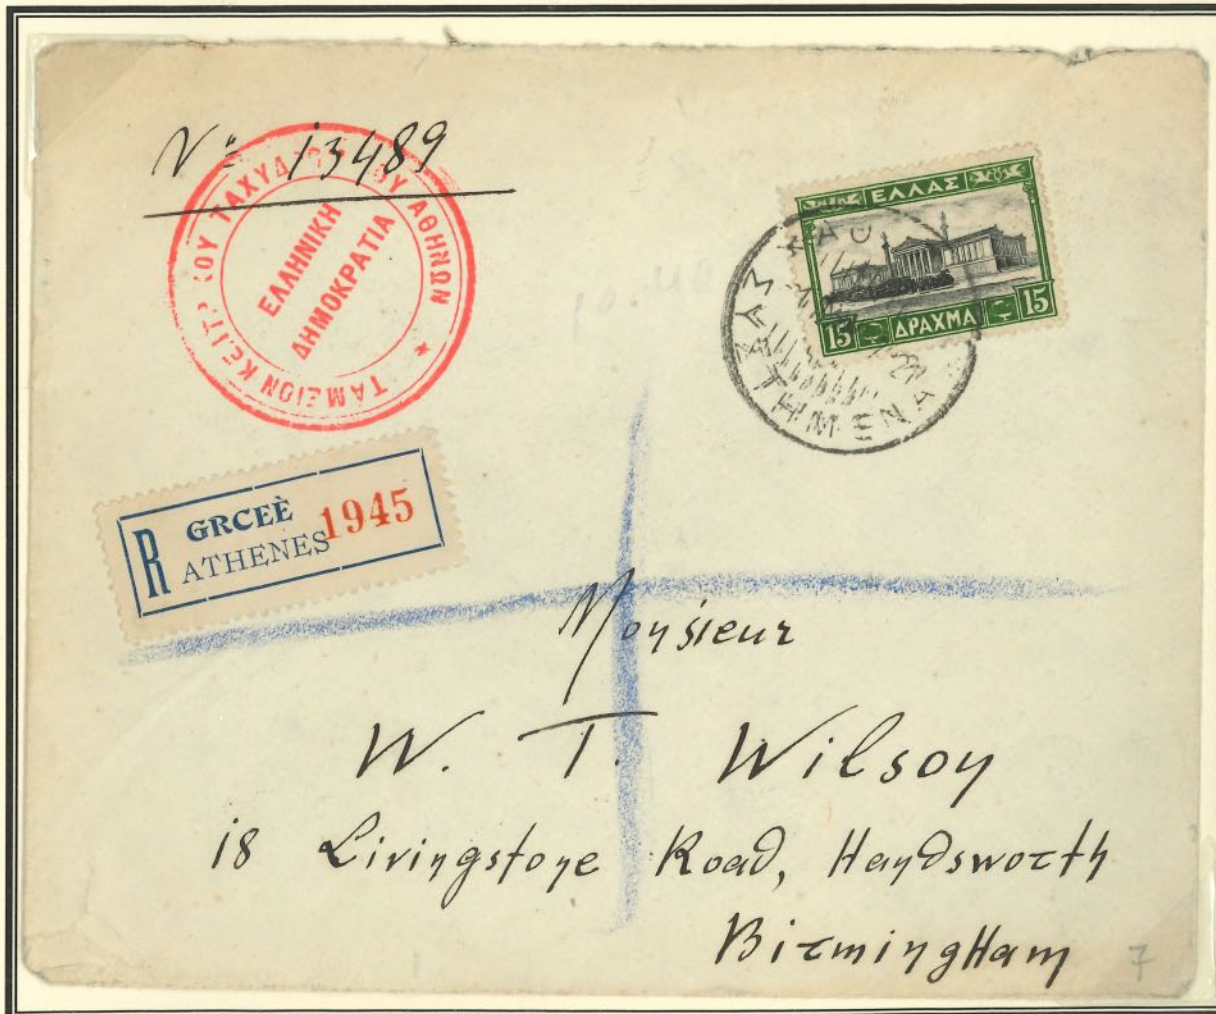 Nº 13489
ΤΑΜΕΙΟΝ ΚΕΝΤΡΙΚΟΥ ΤΑΧΥΔΡΟΜΕΙΟΥ ΑΘΗΝΩΝ *
ΕΛΛΗΝΙΚΗ
ΔΗΜΟΚΡΑΤΙΑ
ΕΛΛΑΣ
15 ΔΡΑΧΜΑ 15
R GRCEÈ 1945
ATHENES
Monsieur
W. T. Wilson
18 Livingstone Road, Handsworth
BirmingHam
7